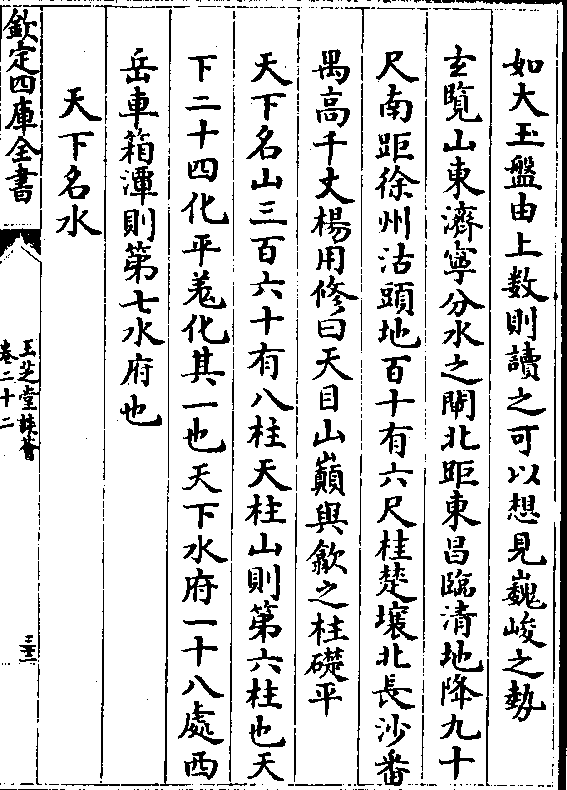 如大玉盤由上數則讀之可以想見巍峻之勢
玄覽山東濟寧分水之閘北距東昌臨清地降九十
尺南距徐州沽頭地百十有六尺桂楚壤北長沙番
禺高千丈楊用修曰天目山巔與歙之柱礎平
天下名山三百六十有八柱天柱山則第六柱也天
下二十四化平羗化其一也天下水府一十八處西
岳車箱潭則第七水府也
天下名水
欽定四庫全書
玉芝堂談薈
卷二十二
三十三